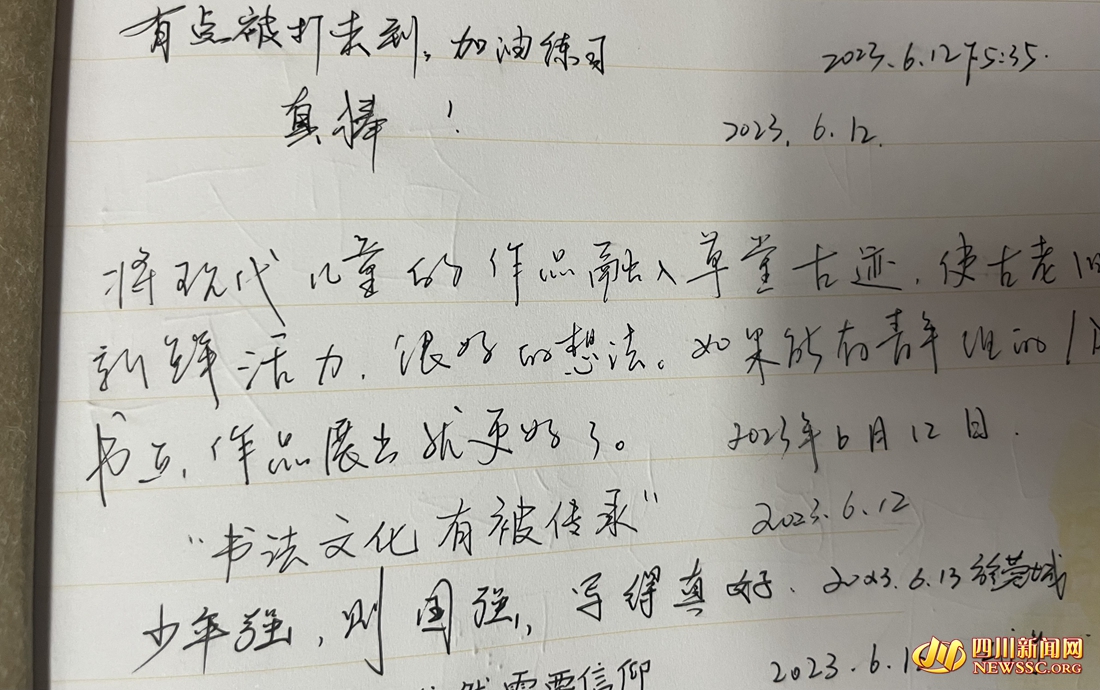 有点被打击到，加油练习 2023.6.12下5:35.
真棒！ 2023.6.12.
将现代儿童的作品融入草堂古迹，使古老
新鲜活力，很好的想法。如果能有青年组的
书画，作品展出就更好了。 2023年6月12日.
“书法文化有被传承” 2023.6.12
少年强，则国强，写得真好. 2023.6.13
需要信仰 2023.6.1
四川新闻网
NEWSSC.ORG